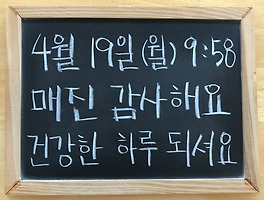 4월 19일(월) 9:58
매진 감사해요
건강한 하루 되셔요